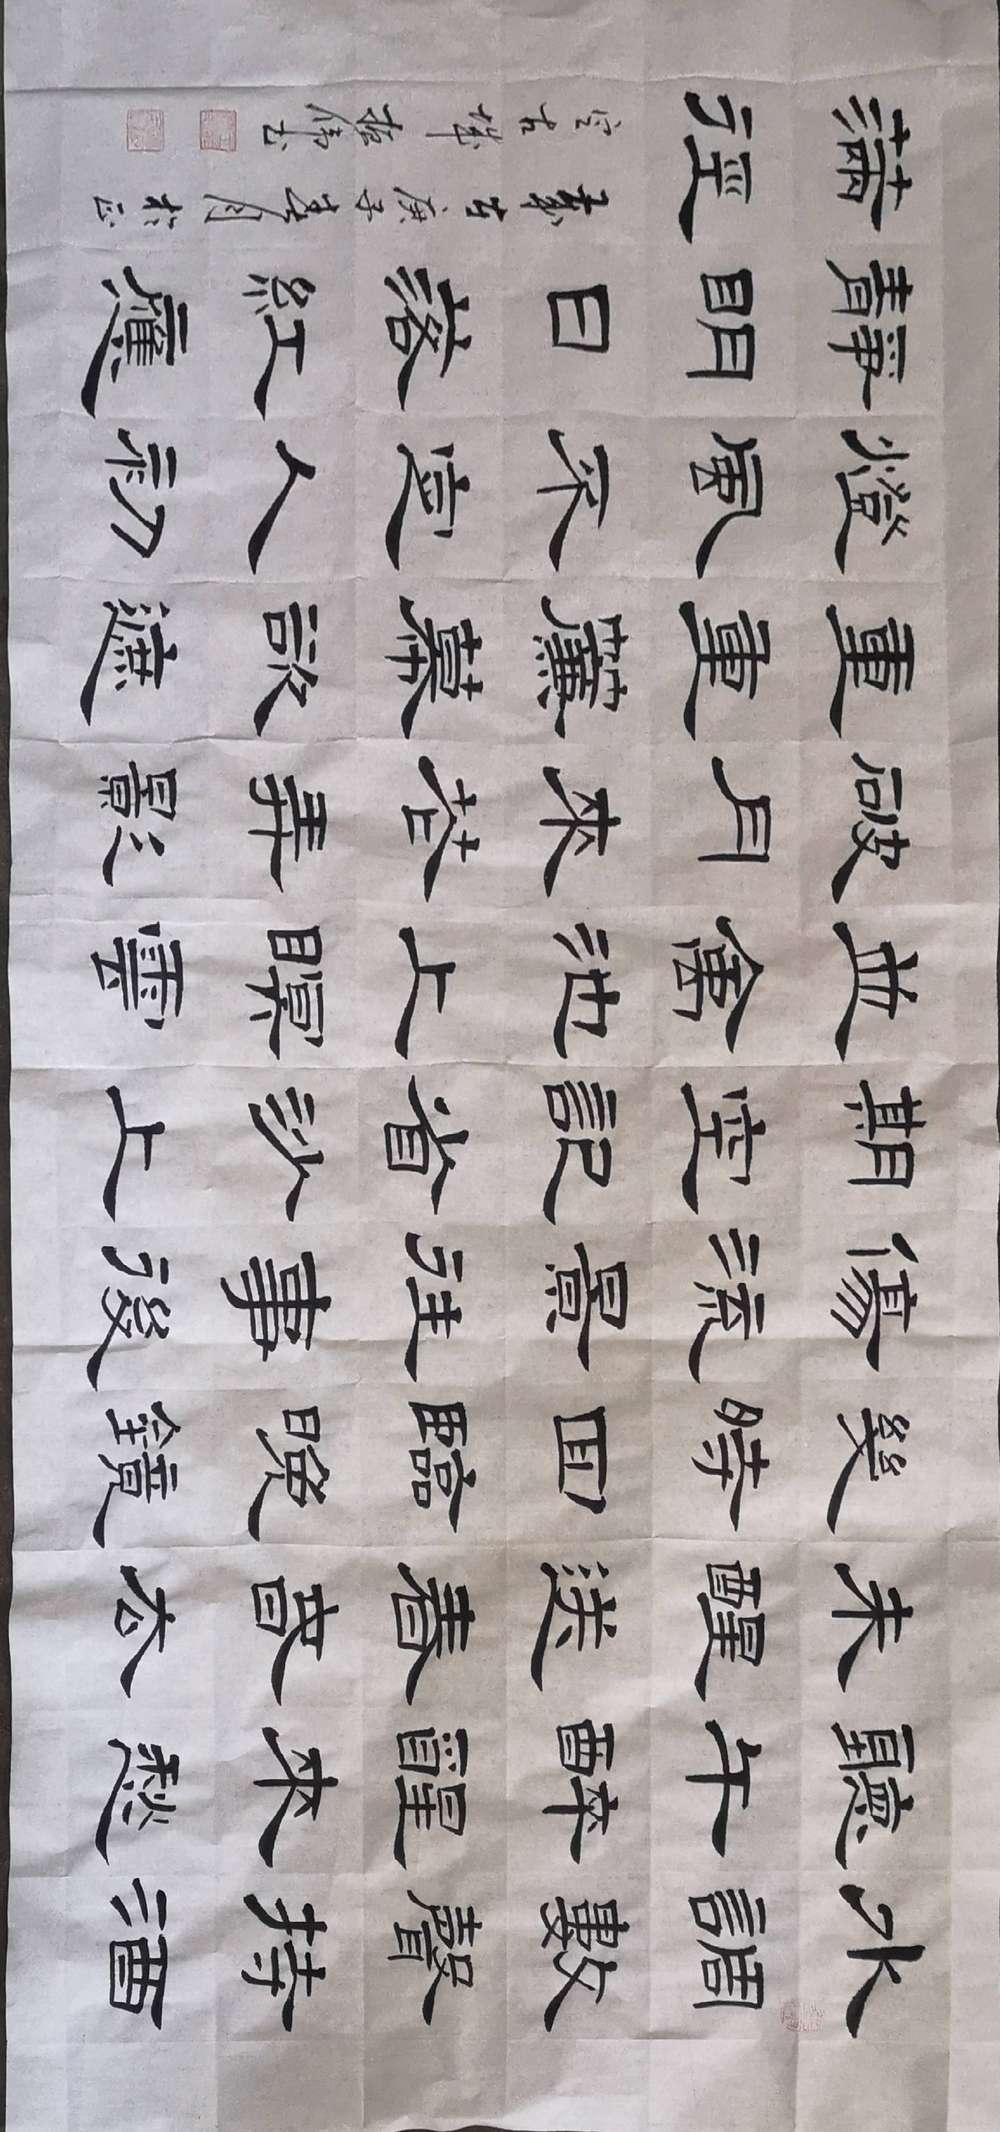 水調數聲持酒
聽午醉醒來愁
未醒送春春去
幾時回臨晚鏡
傷流景往事後
期空記省沙上
並禽池上瞑雲
破月來花弄影
重重簾幕密遮
燈風不定人初
靜明日落紅應
滿徑 庚子春月